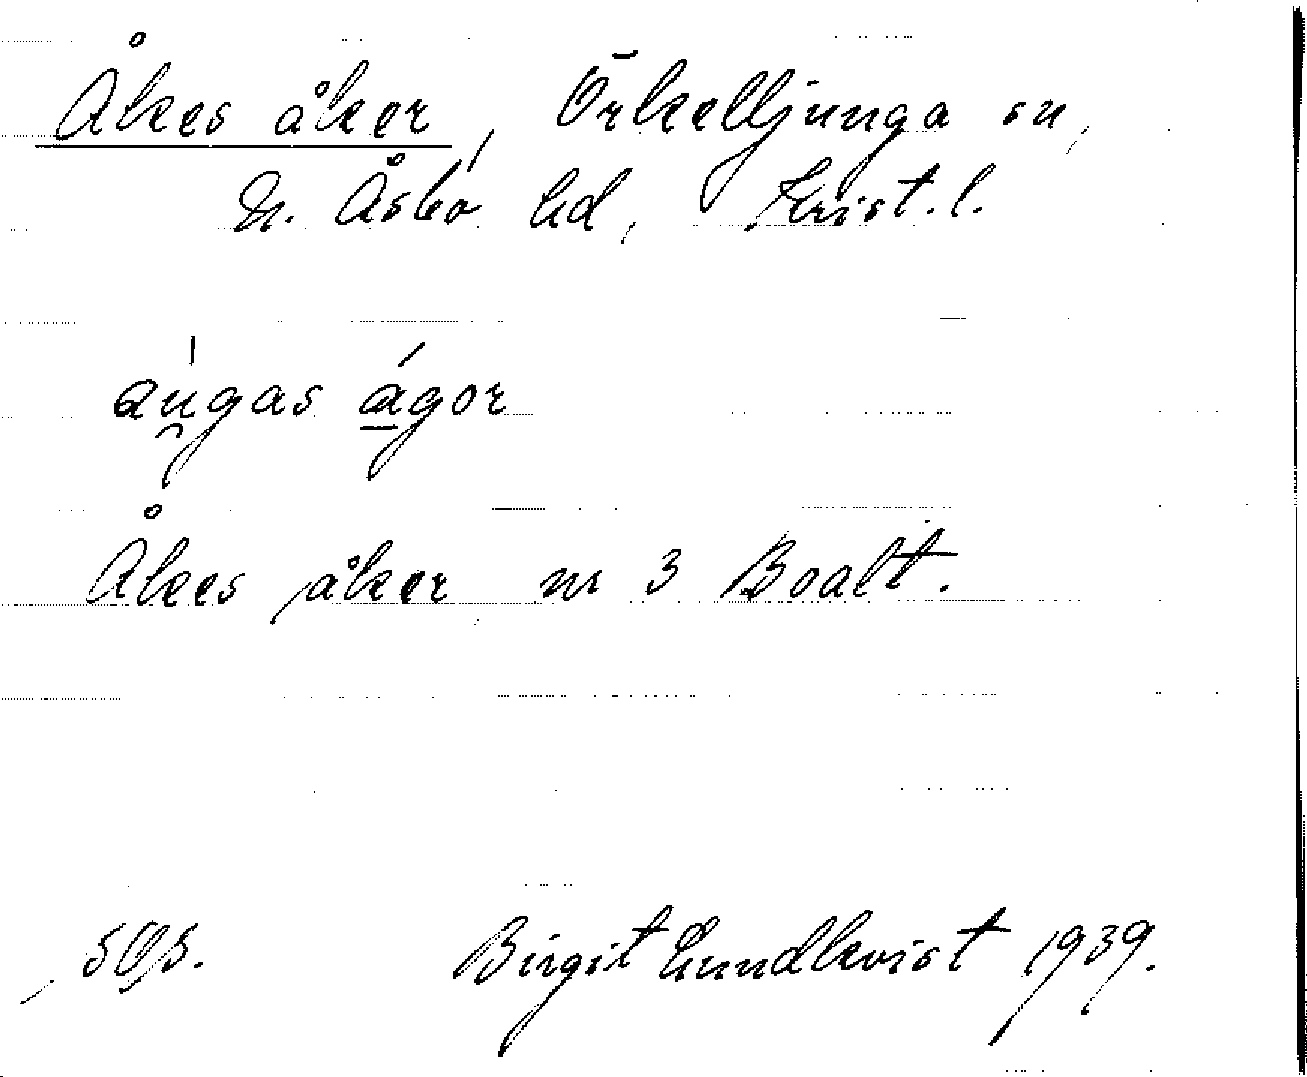 Åkes åker, Örkelljunga sn,
N. Åsbo hd, Krist. l.
au̯gas ágor
Åkes åker nr 3 Boalt.
Birgit Lundkvist 1939.